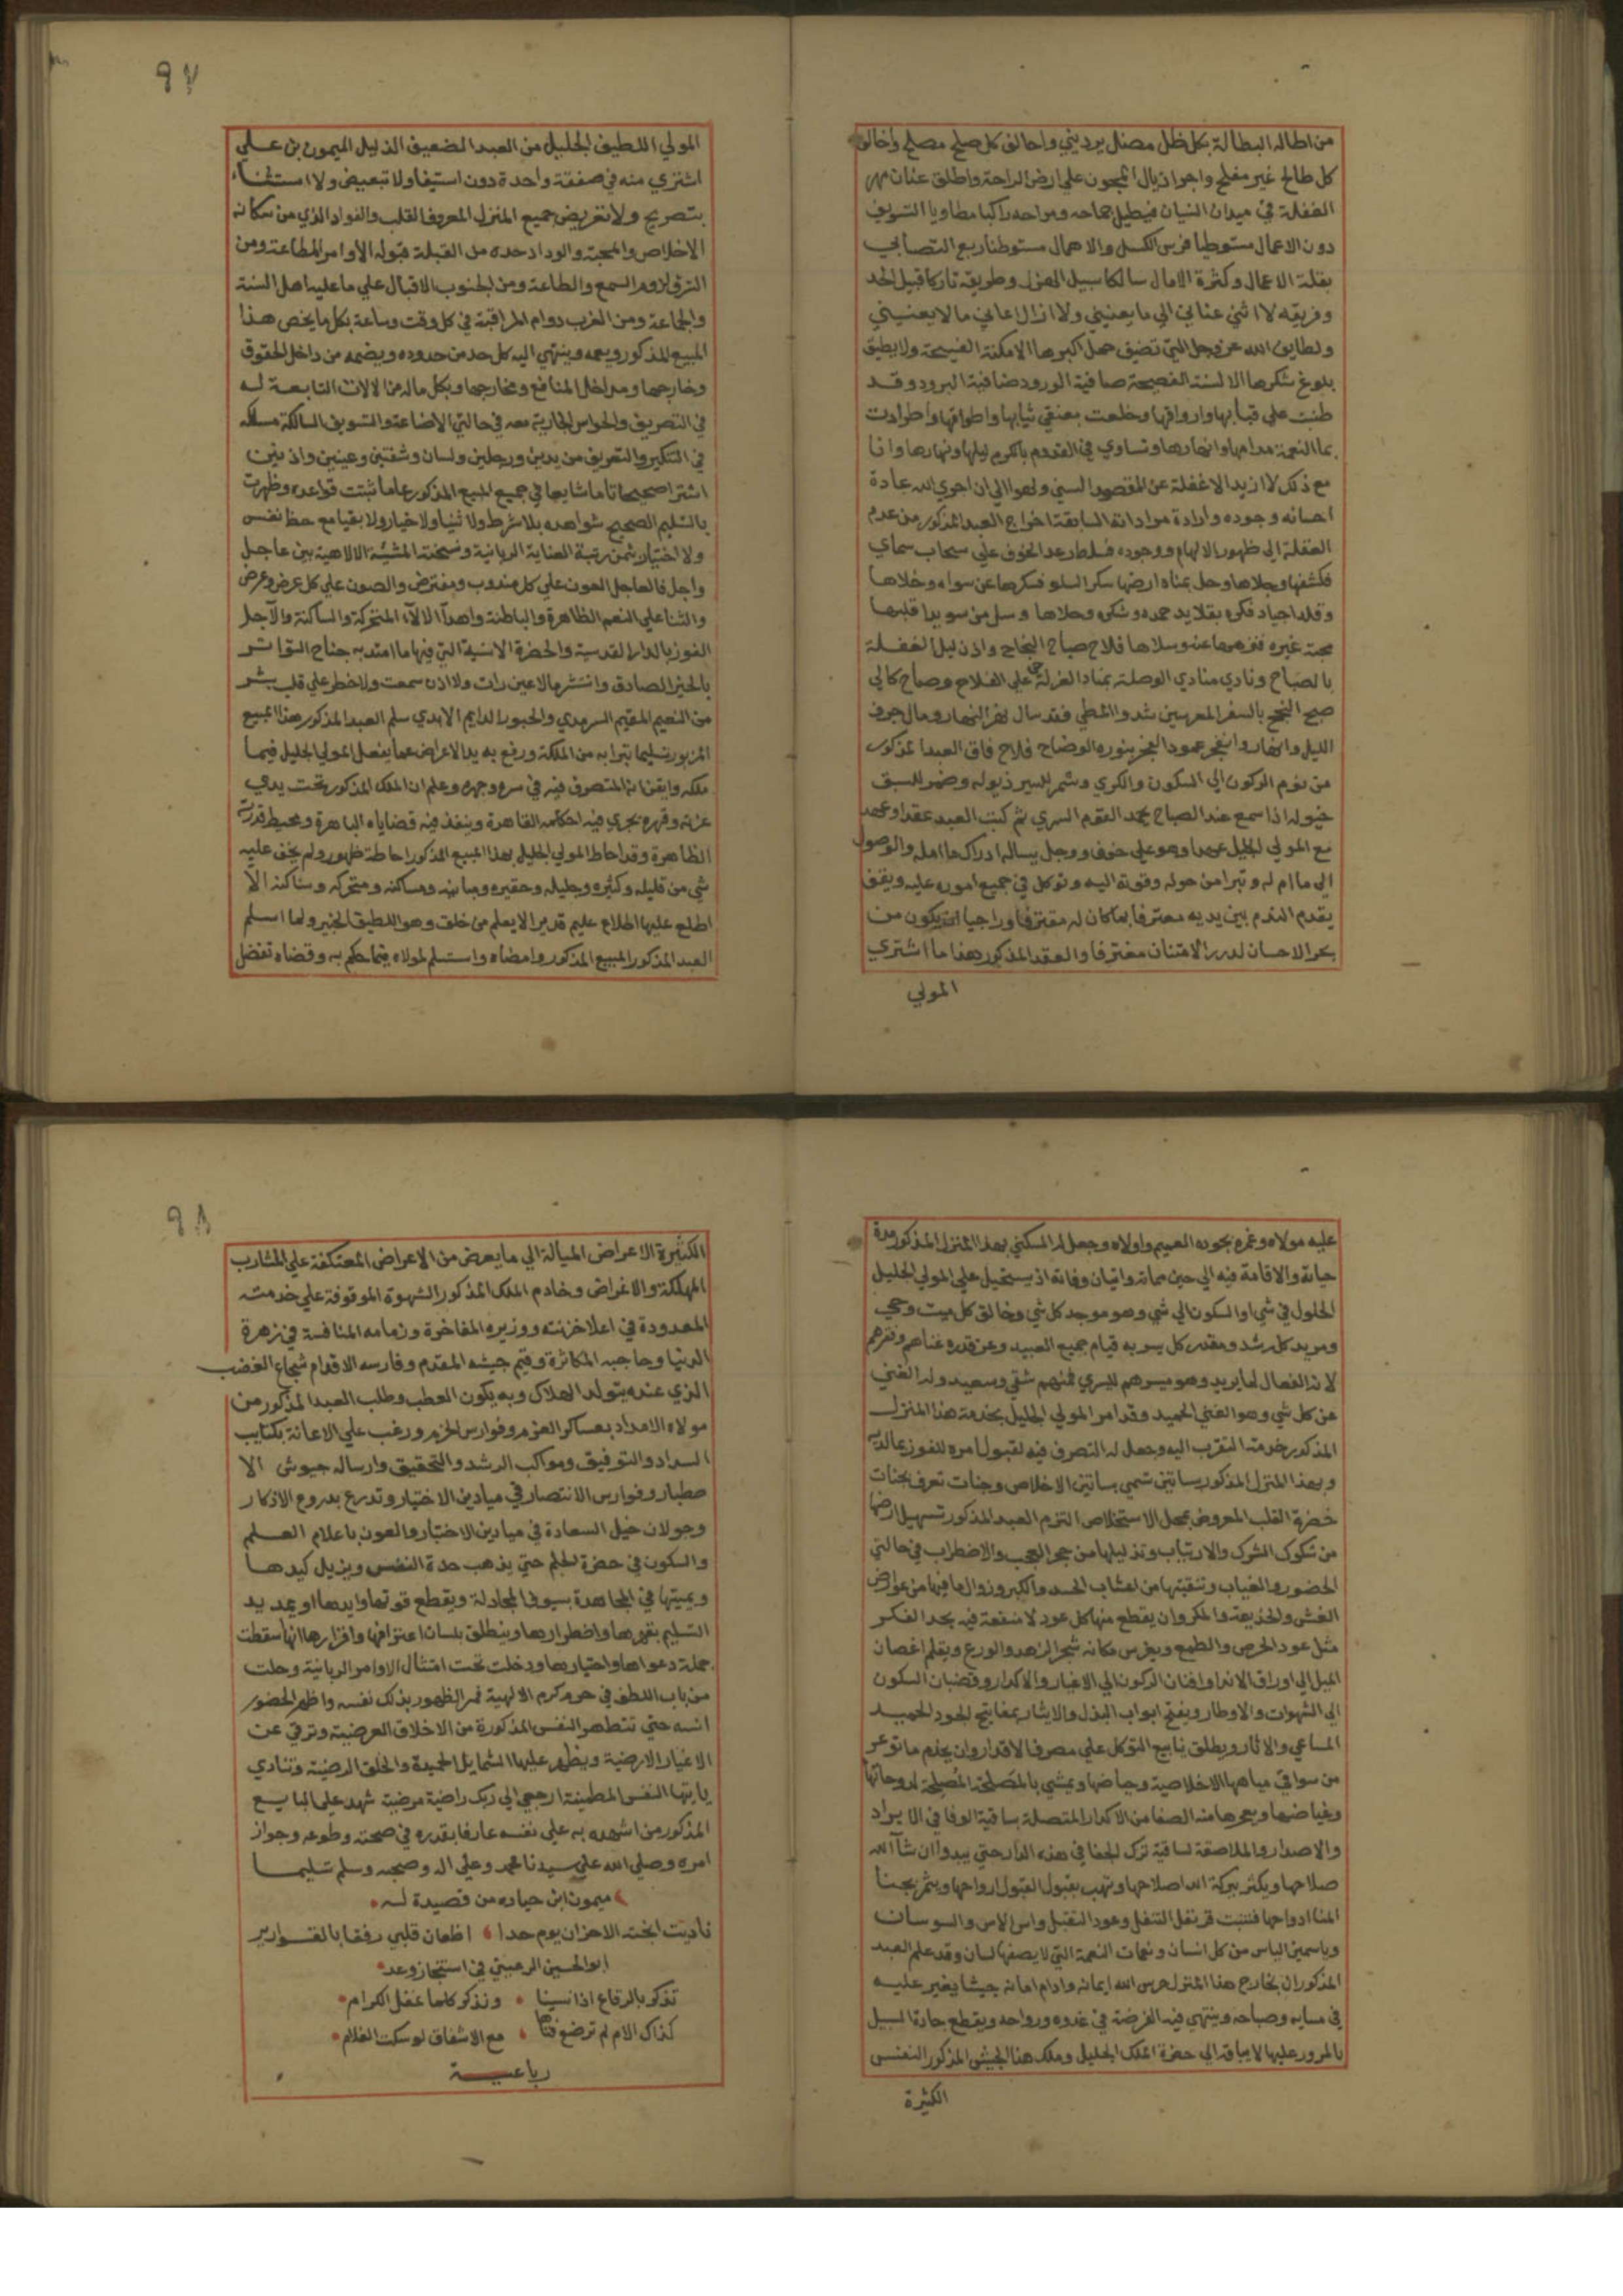 من اطاله البطالة بكل ظل مضل يرديني واحالف كل صلح مصلح واخالف
كل طالح غير مفلح واجر اذيال المجون على ارض الراحة واطلق عنان مهر
الغفلة في ميدان النسيان فيطيل جماحه ومراحه راكبا مطاويا التسويف
دون الاعمال مستوطيا فرس الكسل والاهمال مستوطنا ربع التصابي
بقلة الاعمال وكثرة الامال سالكا سبيل الهزل وطريقه تاركا قبيل الجد
وفريقه لا اثني عناني الي ما يعنيني ولا ازال اعاني ما لا يعنيني
ولطايف الله عز وجل التي تضيق حمل اكبرها الامكنة الفسيحة ولا يطيق
بلوغ شكرها الالسنة الفصيحة صافية الورود ضافية البرود وقد
طنبت علي قبابها واروقها وخلعت ثيابها واطواقها
النعمة مدامها وانهارها وتساوي في القدوم بالكرم ليلها ونهارها وانا
مع ذلك لا ازيد الا غفلة عن المقصد السني ولهوا الي ان اجري الله عادة
احسانه وجوده وارادة مراداته السابقة اخراج العبد المذكور من عدم
الغفلة الي ظهور الالهام ووجوده فطار عد الخوف علي سحاب سماي
فكشفها وجلاها وحل بمناه ارضها سكر السلو فسكرها عن سواه وخلاها
وقلد اجياد فكره بقلايد حمده وشكره وحلاها وسل من سويدا قلبها
محبة غيره فنزهها عنه وسلاها فلاح صباح النجاح واذن ليل الغفلة
بالصباح ونادي منادي الوصلة بمناد العزلة حي علي الفلاح وصاح كالي
صبح النجح بالسفر المعرسين شدوا المطي فقد سال نهر النهار ومال جرف
الليل وانهار وانفجر عمود الفجر بنوره الوضاح فلاح فاق العبد المذكور
من نوم الركون الي السكون والكري وشمر للسير ذيوله وضمر للسبق
خيوله اذا سمع عند الصباح يحمد القوم السري ثم كتب العبد عقدا وعهد
مع المولي الجليل عهدا وهو علي خوف ووجل يساله ادراك ما امله والوصول
الي ما ام له وتبرا من حوله وقوته اليه وتوكل في جميع اموره عليه ويقف
بقدم الندم بين يديه معترفا بما كان له مقترفا وراجيا ان يكون من
بحر الاحسان لدرر الامتنان مغترفا والعقد المذكور هذا ما اشتري
المولي
٩٧
المولي اللطيف الجليل من العبد الضعيف الذليل الميمون بن علي
اشتري منه في صفقة واحدة دون استيفا ولا تبعيض ولا استثناء
بتصريح ولا تعريض جميع المنزل المعروف القلب والفواد الذي من سكانه
الاخلاص والمحبة والوداد حده من القبلة قبوله الأوامر المطاعة ومن
الشرق لزوم السمع والطاعة ومن الجنوب الاقبال علي ما عليه اهل السنة
والجماعة ومن الغرب دوام المراقبة في كل وقت وساعة بكل ما يخص هذا
المبيع المذكور ويعمه وينتهي اليه كل حد من حدوده ويضمه من داخل الحقوق
وخارجها ومداخل المنافع ومخارجها وبكل ماله من الالات التابعة له
في التصريف والحواس الجارية معه في حالتي الاضاعة والتسويف السالكة مسلكه
في التنكير والتعريف من يدين ورجلين ولسان وشفتين وعينين واذنين
اشترا صحيحا تاما شايعا في جميع المبيع المذكور عاما ثبتت قواعده وظهرت
بالتسليم الصحيح شواهده بلا شرط ولا ثنيا ولا خيار ولا بقيا مع حظ نفس
ولا اختيار بثمن رتبة العناية الربانية ونسخة المشيئة الالاهية بين عاجل
واجل فالعاجل العون علي كل مندوب ومفترض والصون علي كل عرض وعرض
والثنا علي النعم الظاهرة والباطنة واهدا الالآء المتحركة والساكنة والآجل
الفوز بالدار القدسية والحضرة الانسية التي فيها ما امتد به جناح التواتر
بالخبر الصادق وانتشر مالا عين رات ولا اذن سمعت ولا خطر علي قلب بشر
من النعيم المقيم السرمدي والحبور الدايم الابدي سلم العبد المذكور هذا المبيع
المزبور تسليما تبرا به من الملكة ورفع به يد الاعراض عما يفعل المولي الجليل فيما
ملكه وايقن انه المتصرف فيه في سره وجهره وعلم ان الملك المذكور تحت يدي
عزته وقهره تجري فيه احكامه القاهرة وينفذ فيه قضاياه الباهرة ومحيط قدرته
الظاهرة وقد احاط المولي الجليل بهذا المبيع المذكور احاطة ظهور ولم يخف عليه
شي من قليله وكثيره وجليله وحقيره ومبانيه ومساكنه ومتحركه وساكنه الا
اطلع عليها اطلاع عليم قدير الا يعلم من خلق وهو اللطيف الخبير ولما اسلم
العبد المذكور المبيع المذكور وامضاه واستسلم لمولاه فيما حكم به وقضاه تفضل
عليه مولاه وغمره بجوده العميم واولاه وجعل له السكني بهذا المنزل المذكور مدة
حياته والاقامة فيه الي حين مماته واتيان وفاته اذ يستحيل علي المولي الجليل
الحلول في شي او السكون الي شي وهو موجد كل شي وخالق كل ميت وحي
ومريد كل رشد ومقدر كل يسر به قيام جميع العبيد وعن قدره غناهم وفقرهم
لانه الفعال لما يريد وهو ميسرهم لليسري فمنهم شقي وسعيد وله الغني
عن كل شي وهو الغني الحميد وقد امر المولي الجليل بخدمة هذا المنزل
المذكور خدمة التقرب اليه وجعل له التصرف فيه لقبول امره للفوز بما لديه
وبهذا المنزل المذكور بساتين تسمي بساتين الاخلاص وجنات تعرف بجنات
حضرة القلب المعروض بمحل الاستخلاص التزم العبد المذكور تسهيل ارضها
من شكوك الشرك والارتياب وتذليلها من حجر العجب والاضطراب في حالتي
الحضور والغياب وتنقيتها من اعشاب الحسد والكبر وزوال ما فيها من عوارض
الغش والخديعة والمكر وان يقطع منها كل عود لا منفعة فيه بحد الفكر
مثل عود الحرص والطمع ويغرس مكانه شجر الزهد والورع ويقلم اغصان
الميل الي اوراق الاندا وافنان الركون الي الاغيار والاكدار وقضبان السكون
الي الشهوات والاوطار ويفتح ابواب البذل والايثار بمفاتيح الجود الحميد
المساعي والاثار ويطلق ينابيع التوكل علي مصرف الاقدار وان يخدم ما توعر
من سواقي مياهها الاخلاصية وحياضها ويمشي بالمصلحة المصلحة لدوحاتها
وغياضها ويجريها منه الصفا من الاكدار المتصلة بساقية الوفا في الايراد
والاصدار والملاصقة لساقية ترك الجفا في هذه الدار حتي يبدو ان شآ الله
صلاحها ويكثر ببركة الله اصلاحها وتهب بقبول القبول ارواحها ويثمر بجنا
المنا ادواحها فتنبت قرنفل التنفل وعود التقبل واس الاس والسوسان
وياسمين الياس من كل انسان ونعمات النعمة التي لا يصفها لسان وقد علم العبد
المذكور ان بخارج هذا المنزل حرس الله ايمانه وادام امانه جيشا يغير عليه
في مسايه وصباحه وينتهي فيه الفرصة في غدوه ورواحه ويقطع جادة السبيل
بالمرور عليها الا بباقه الي حضرة الملك الجليل وملك هذا الجيش المذكور النفس
الكثيرة
٩٨
الكثيرة الاعراض الميالة الي ما يعرض من الاعراض المعتكفة علي المشارب
المهلكة والاغراض وخادم الملك المذكور الشهوة الموقوفة علي خدمته
المعدودة في اعلا خزنته ووزيره المفاخرة وزمامه المنافسة في زهرة
الدنيا وحاجبه المكاثرة وقيم جيشه المقدم وفارسه الاقدام شجاع الغضب
الذي عنه يتولد الهلاك وبه يكون العطب وطلب العبد المذكور من
مولاه الامداد بعساكر العزم وفوارس الحزم ورغب علي الاعانة بكتايب
السداد والتوفيق ومواكب الرشد والتحقيق وارساله جيوش الا
صطبار وفوارس الانتصار في ميادين الاختيار وتدرع بدروع الاذكار
وجولان خيل السعادة في ميادين الاختيار والعون باعلام العلم
والسكون في حضرة الحلم حتي يذهب حدة النفس ويزيل كيدها
ويميتها في المجاهدة بسيوف المجادلة ويقطع قوتها وايدها او يمد يد
التسليم بقهرها واضطرارها وينطلق بلسان اعترافها واقرارها انها سقطت
جملة دعواها واختيارها ودخلت تحت امتثال الاوامر الربانية وحلت
من باب اللطف في حرم كرم الالهية فمر الظهور بذلك نفسه واظهر الحضور
انسه حتي تتطهر النفس المذكورة من الاخلاق العرضية وترقي عن
الاغيار الارضية ويظهر عليها الشمايل الحميدة والخلق الرضية وتنادي
يايتها النفس المطمئنة ارجعي الي ربك راضية مرضية شهد علي البايع
المذكور من اشهده به علي نفسه عارفا بقدره في صحته وطوعه وجواز
امره وصلي الله علي سيدنا محمد وعلي اله وصحبه وسلم تسليما
ميمون ابن حباره من قصيدة له
ناديت ابخته الاحزان يوم حدا اظعان قلبي رفقا بالقوارير
ابو الحسين الرعيني في استنجاز وعد
تذكر بالرقاع اذا نسينا ونذكر كلما غفل الكرام
كذاك الام لم ترضع فتاها مع الاشفاق لو سكت الغلام
رباعية